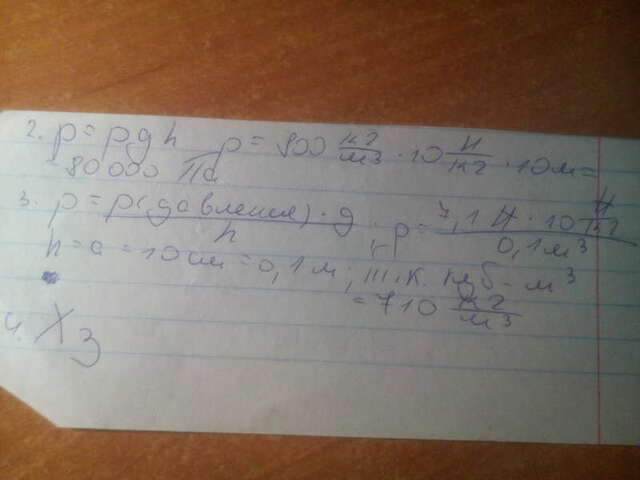 2. p = ρgh ρ = 800 кг/м3 · 10 Н/кг · 10м =
= 80000 Па
3. ρ = p(давления) · g / h ; ρ = 7,1 Н · 10 Н/кг / 0,1м3
h = a = 10см = 0,1м ; т.к. куб - м3
= 710 кг/м3
4. Хз